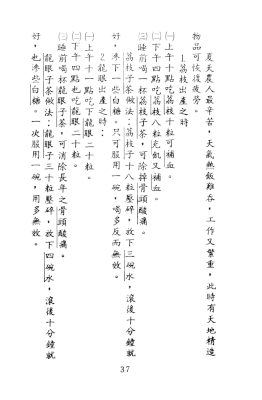 夏天農人最辛苦，天氣熱飯難吞，工作又繁重，此時有天地精造
物品可恢復疲勞。
1.荔枝出產之時
㈠上午十點吃荔枝十粒可補血。
㈡下午四點吃荔枝八粒充飢又補血。
㈢睡前喝一杯荔枝子茶，可除掉骨頭酸痛。
荔枝子茶做法：荔枝子十八粒壓碎，放下三碗水，滾後十分鐘就
好，沬下一些白糖。只可服用一碗，喝多反而無效。
2.龍眼出產之時：
㈠上午十一點吃下龍眼二十粒。
㈡下午四點也吃龍眼二十粒。
㈢睡前喝杯龍眼子茶，可消除長年之骨頭酸痛。
龍眼子茶做法：龍眼子三十粒壓碎，放下四碗水，滾後十分鐘就
好，也沬些白糖。一次服用一碗，用多無效。
37